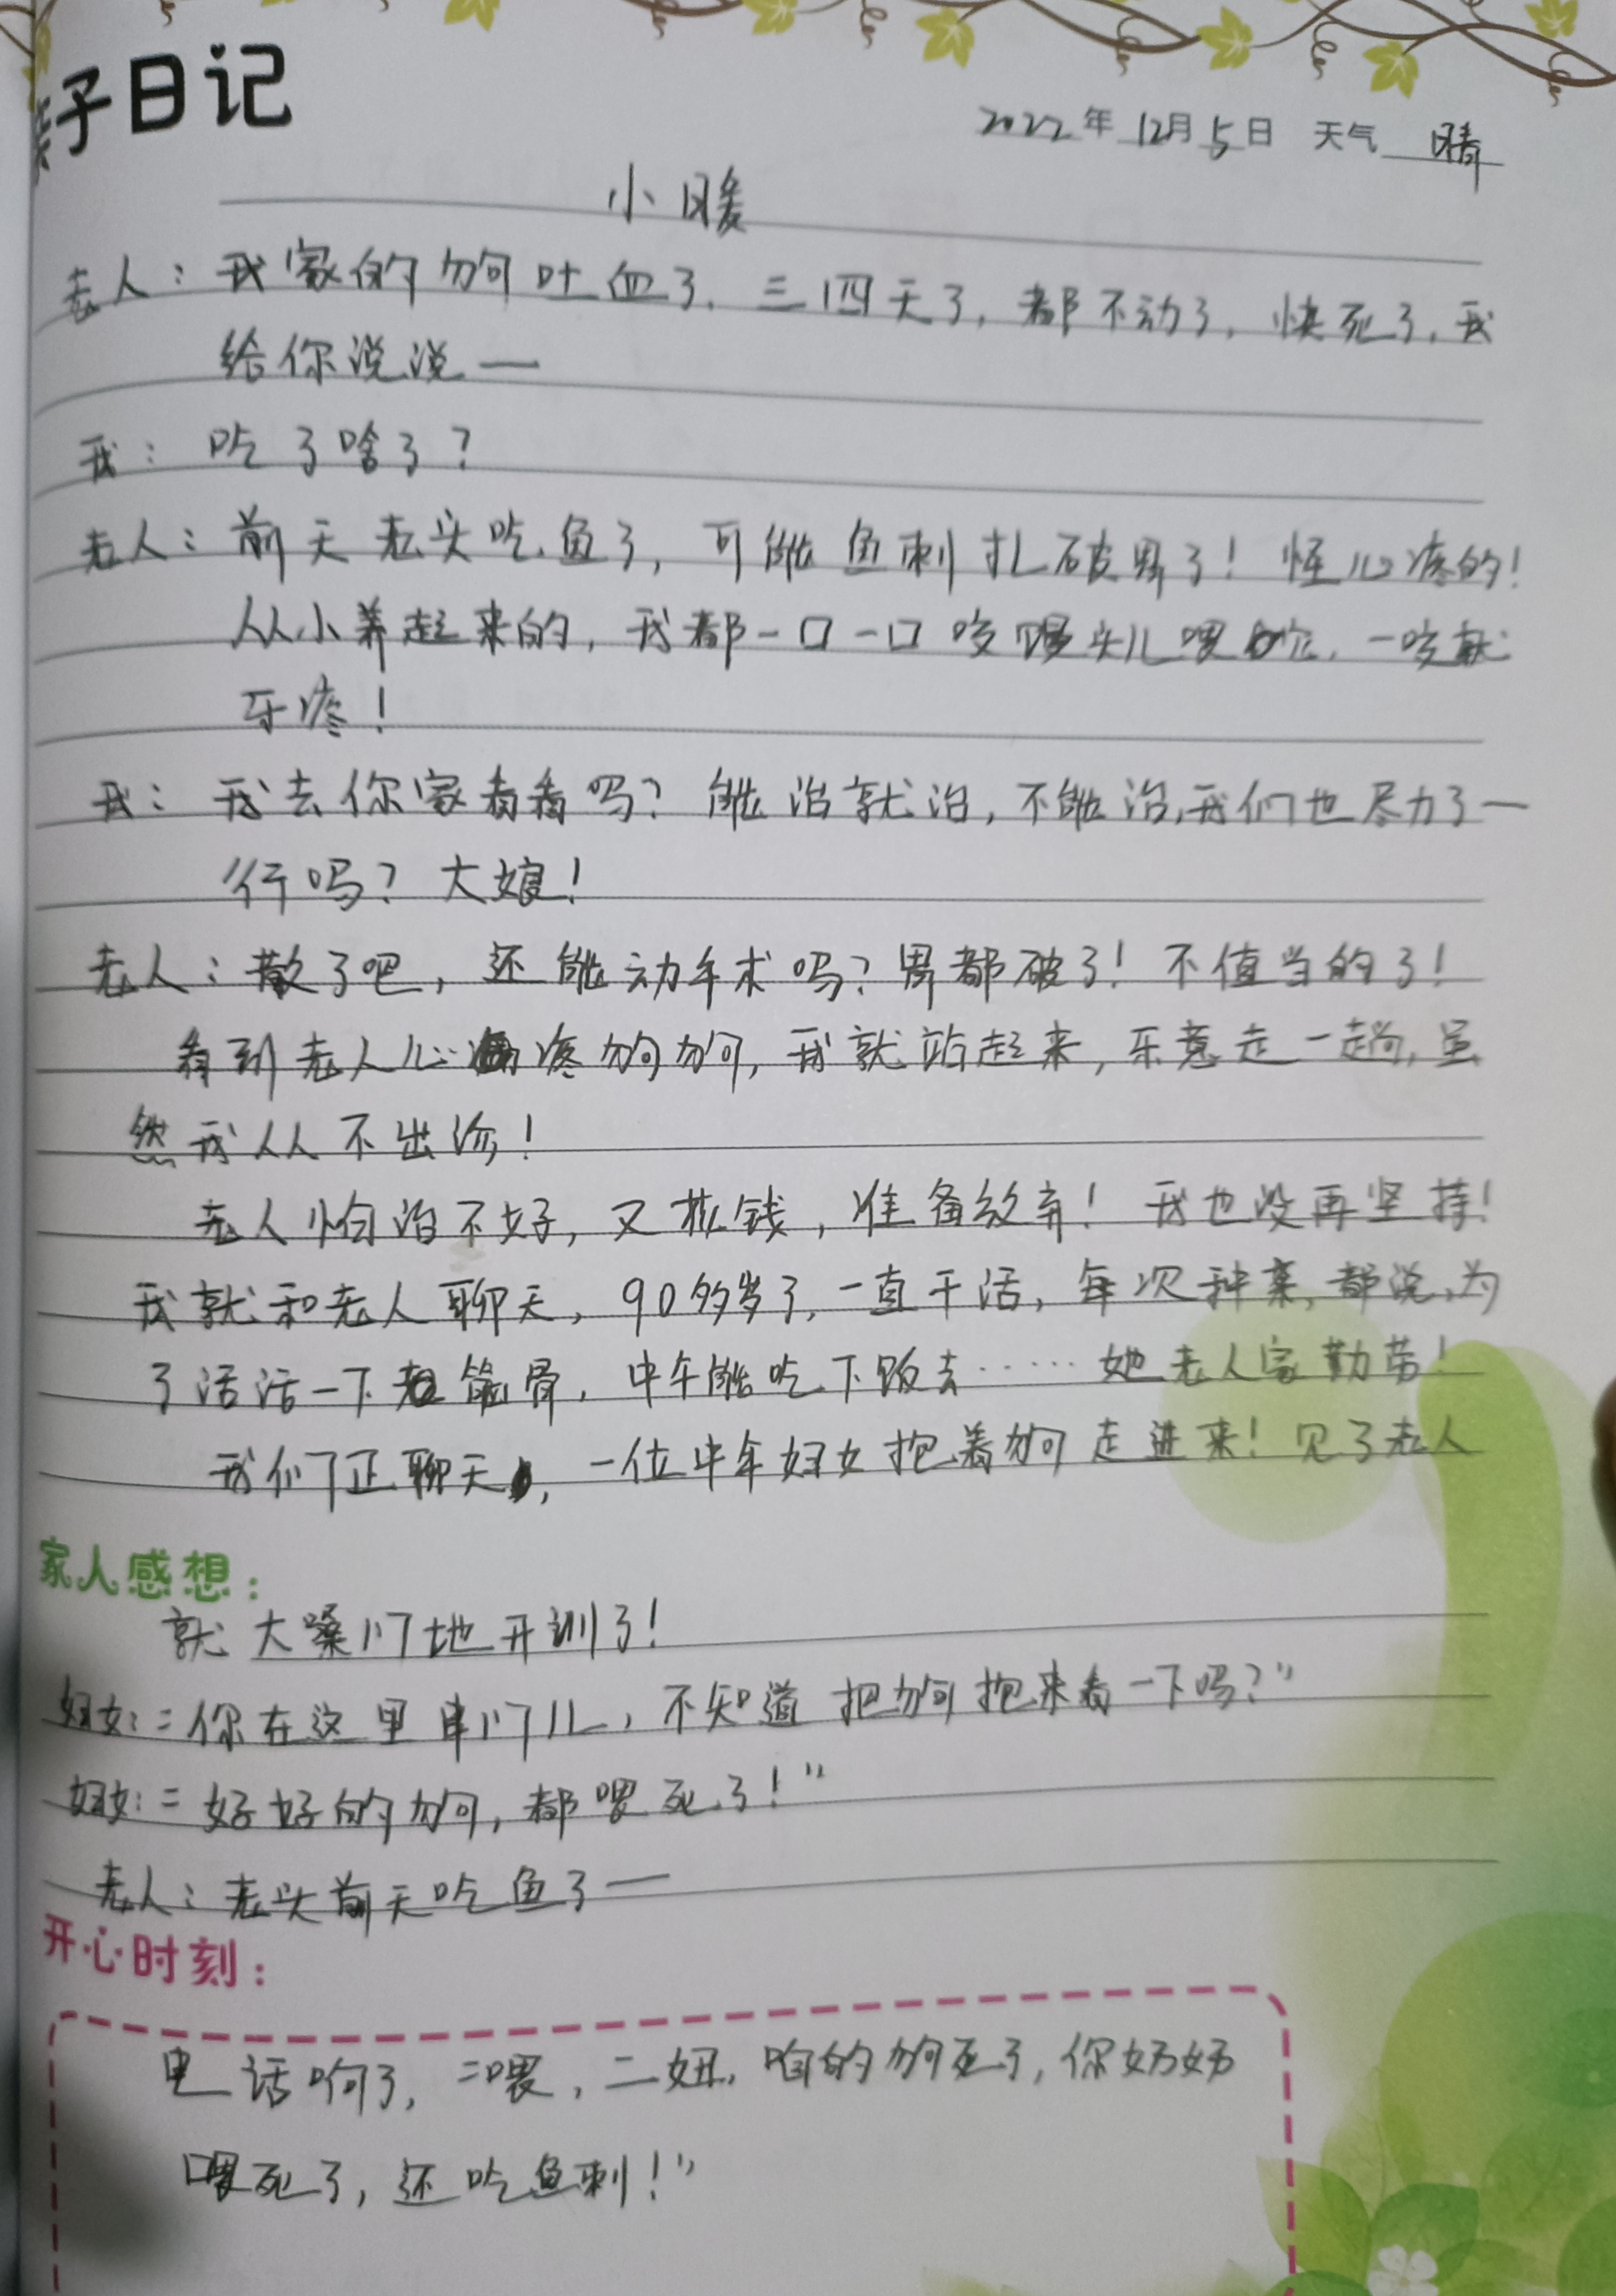 亲子日记
2022年 12月 5日 天气 晴
小暖
老人：我家的狗吐血了，三四天了，都不动了，快死了，我
给你说说—
我：吃了啥了？
老人：前天老头吃鱼了，可能鱼刺扎破胃了！怪心疼的！
从小养起来的，我都一口一口咬馍头儿喂它，一咬就
牙疼！
我：我去你家看看吗？能治就治，不能治，我们也尽力了—
行吗？大娘！
老人：散了吧，还能动手术吗？胃都破了！不值当的了！
看到老人心疼狗狗，我就站起来，乐意走一趟，虽
然我从不出诊！
老人怕治不好，又花钱，准备放弃！我也没再坚持！
我就和老人聊天，90多岁了，一直干活，每次种菜，都说，为
了活活一下筋骨，中午能吃下饭去……她老人家勤劳！
我们正聊天，一位中年妇女抱着狗走进来！见了老人
家人感想：
就大嗓门地开训了！
妇女：“你在这里串门儿，不知道把狗抱来看一下吗？”
妇女：“好好的狗，都喂死了！”
老人：老头前天吃鱼了—
开心时刻：
电话响了，“喂，二妞，咱的狗死了，你奶奶
喂死了，还吃鱼刺！”